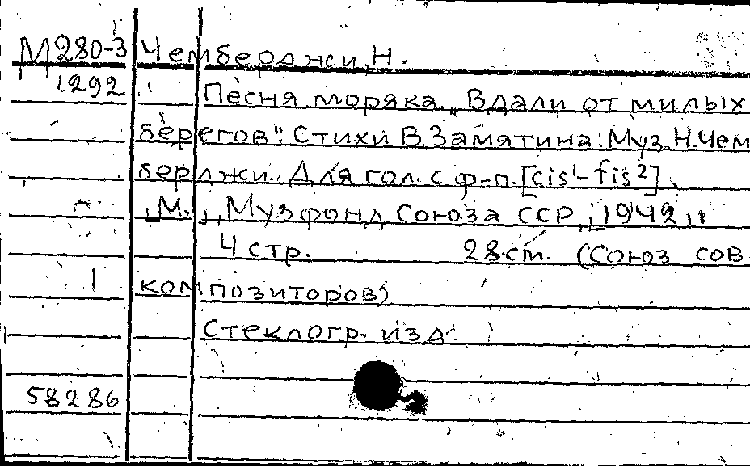 М280-3 Чемберджи, Н.
1292 Песня моряка „Вдали от милых
берегов". Стихи В. Замятина. Муз. Н. Чем
берджи. Для гол. с ф-п. [cis¹-fis²].
„М.„ „Музфонд Союза ССР„ „1942„.
4 стр. 28 см. (Союз сов.
1 композиторов)
Стеклогр. изд.
58286